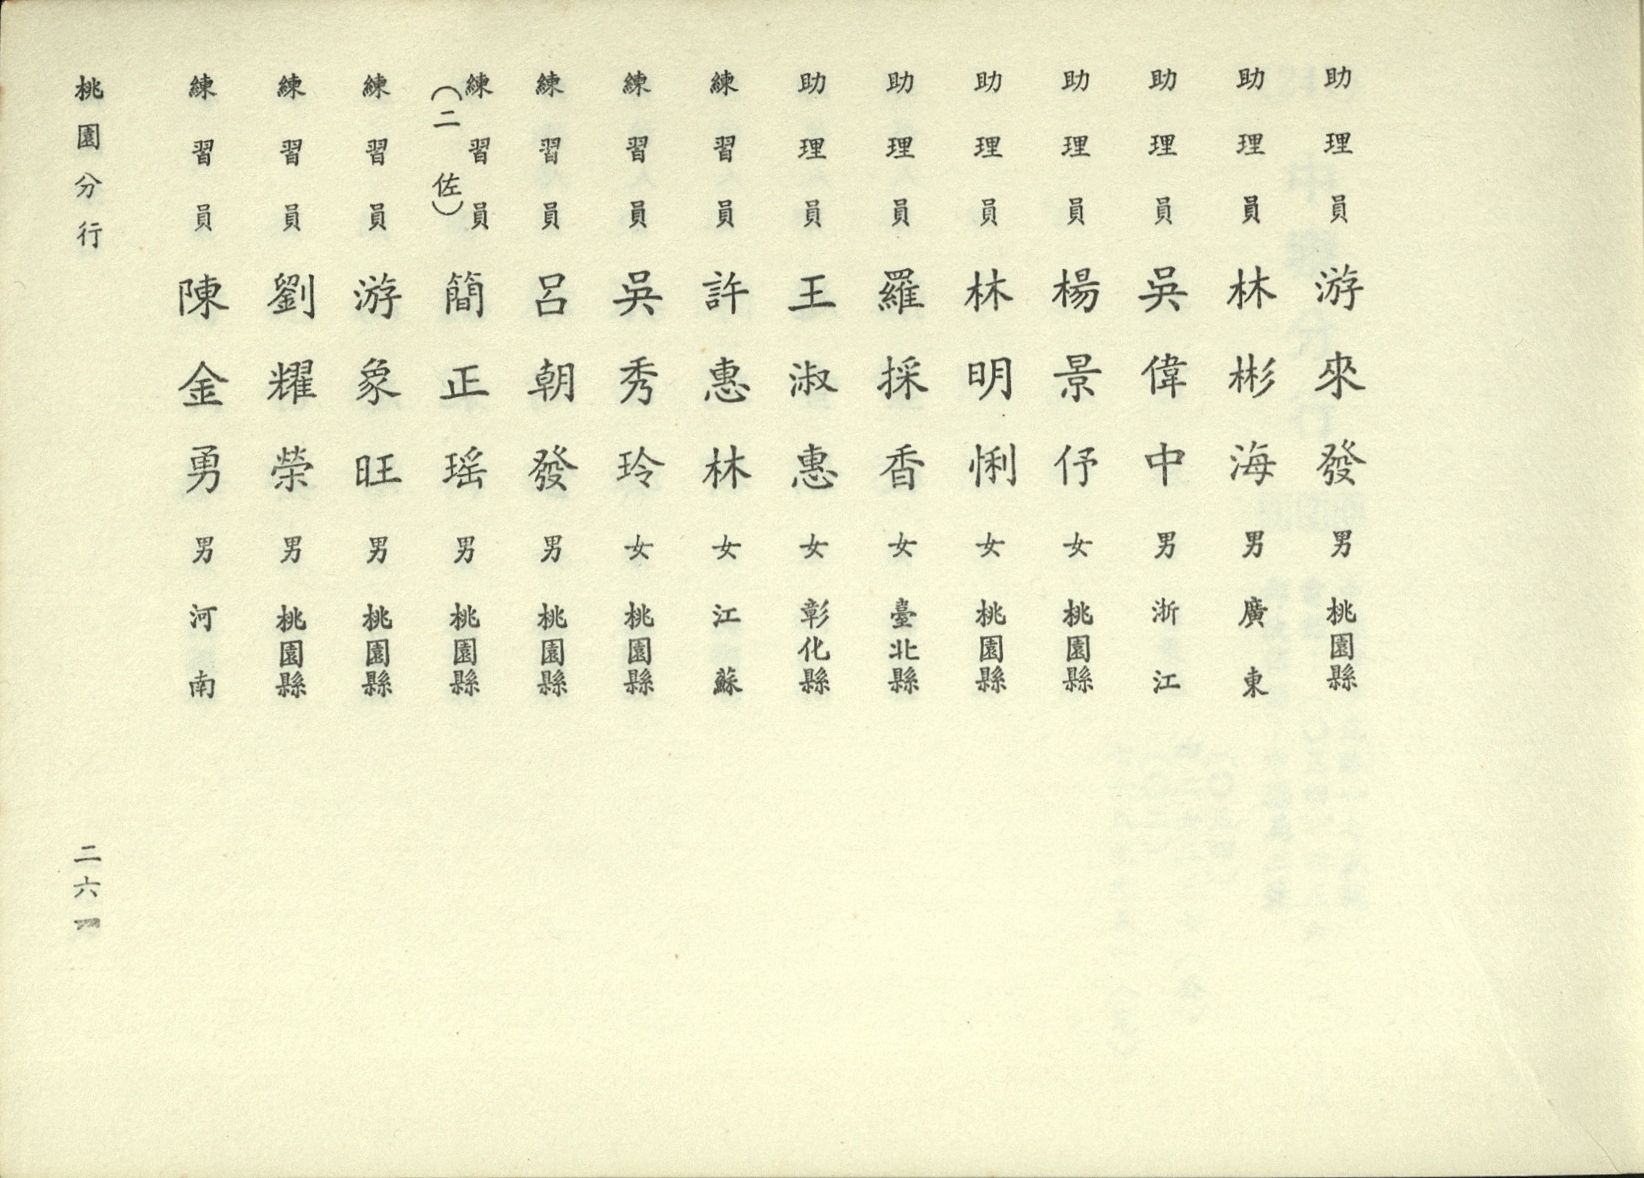 助理員 游來發 男 桃園縣
助理員 林彬海 男 廣東
助理員 吳偉中 男 浙江
助理員 楊景伃 女 桃園縣
助理員 林明悧 女 桃園縣
助理員 羅採香 女 臺北縣
助理員 王淑惠 女 彰化縣
練習員 許惠林 女 江蘇
練習員 吳秀玲 女 桃園縣
練習員 呂朝發 男 桃園縣
練習員（二佐） 簡正瑶 男 桃園縣
練習員 游象旺 男 桃園縣
練習員 劉耀榮 男 桃園縣
練習員 陳金勇 男 河南
桃園分行 二六